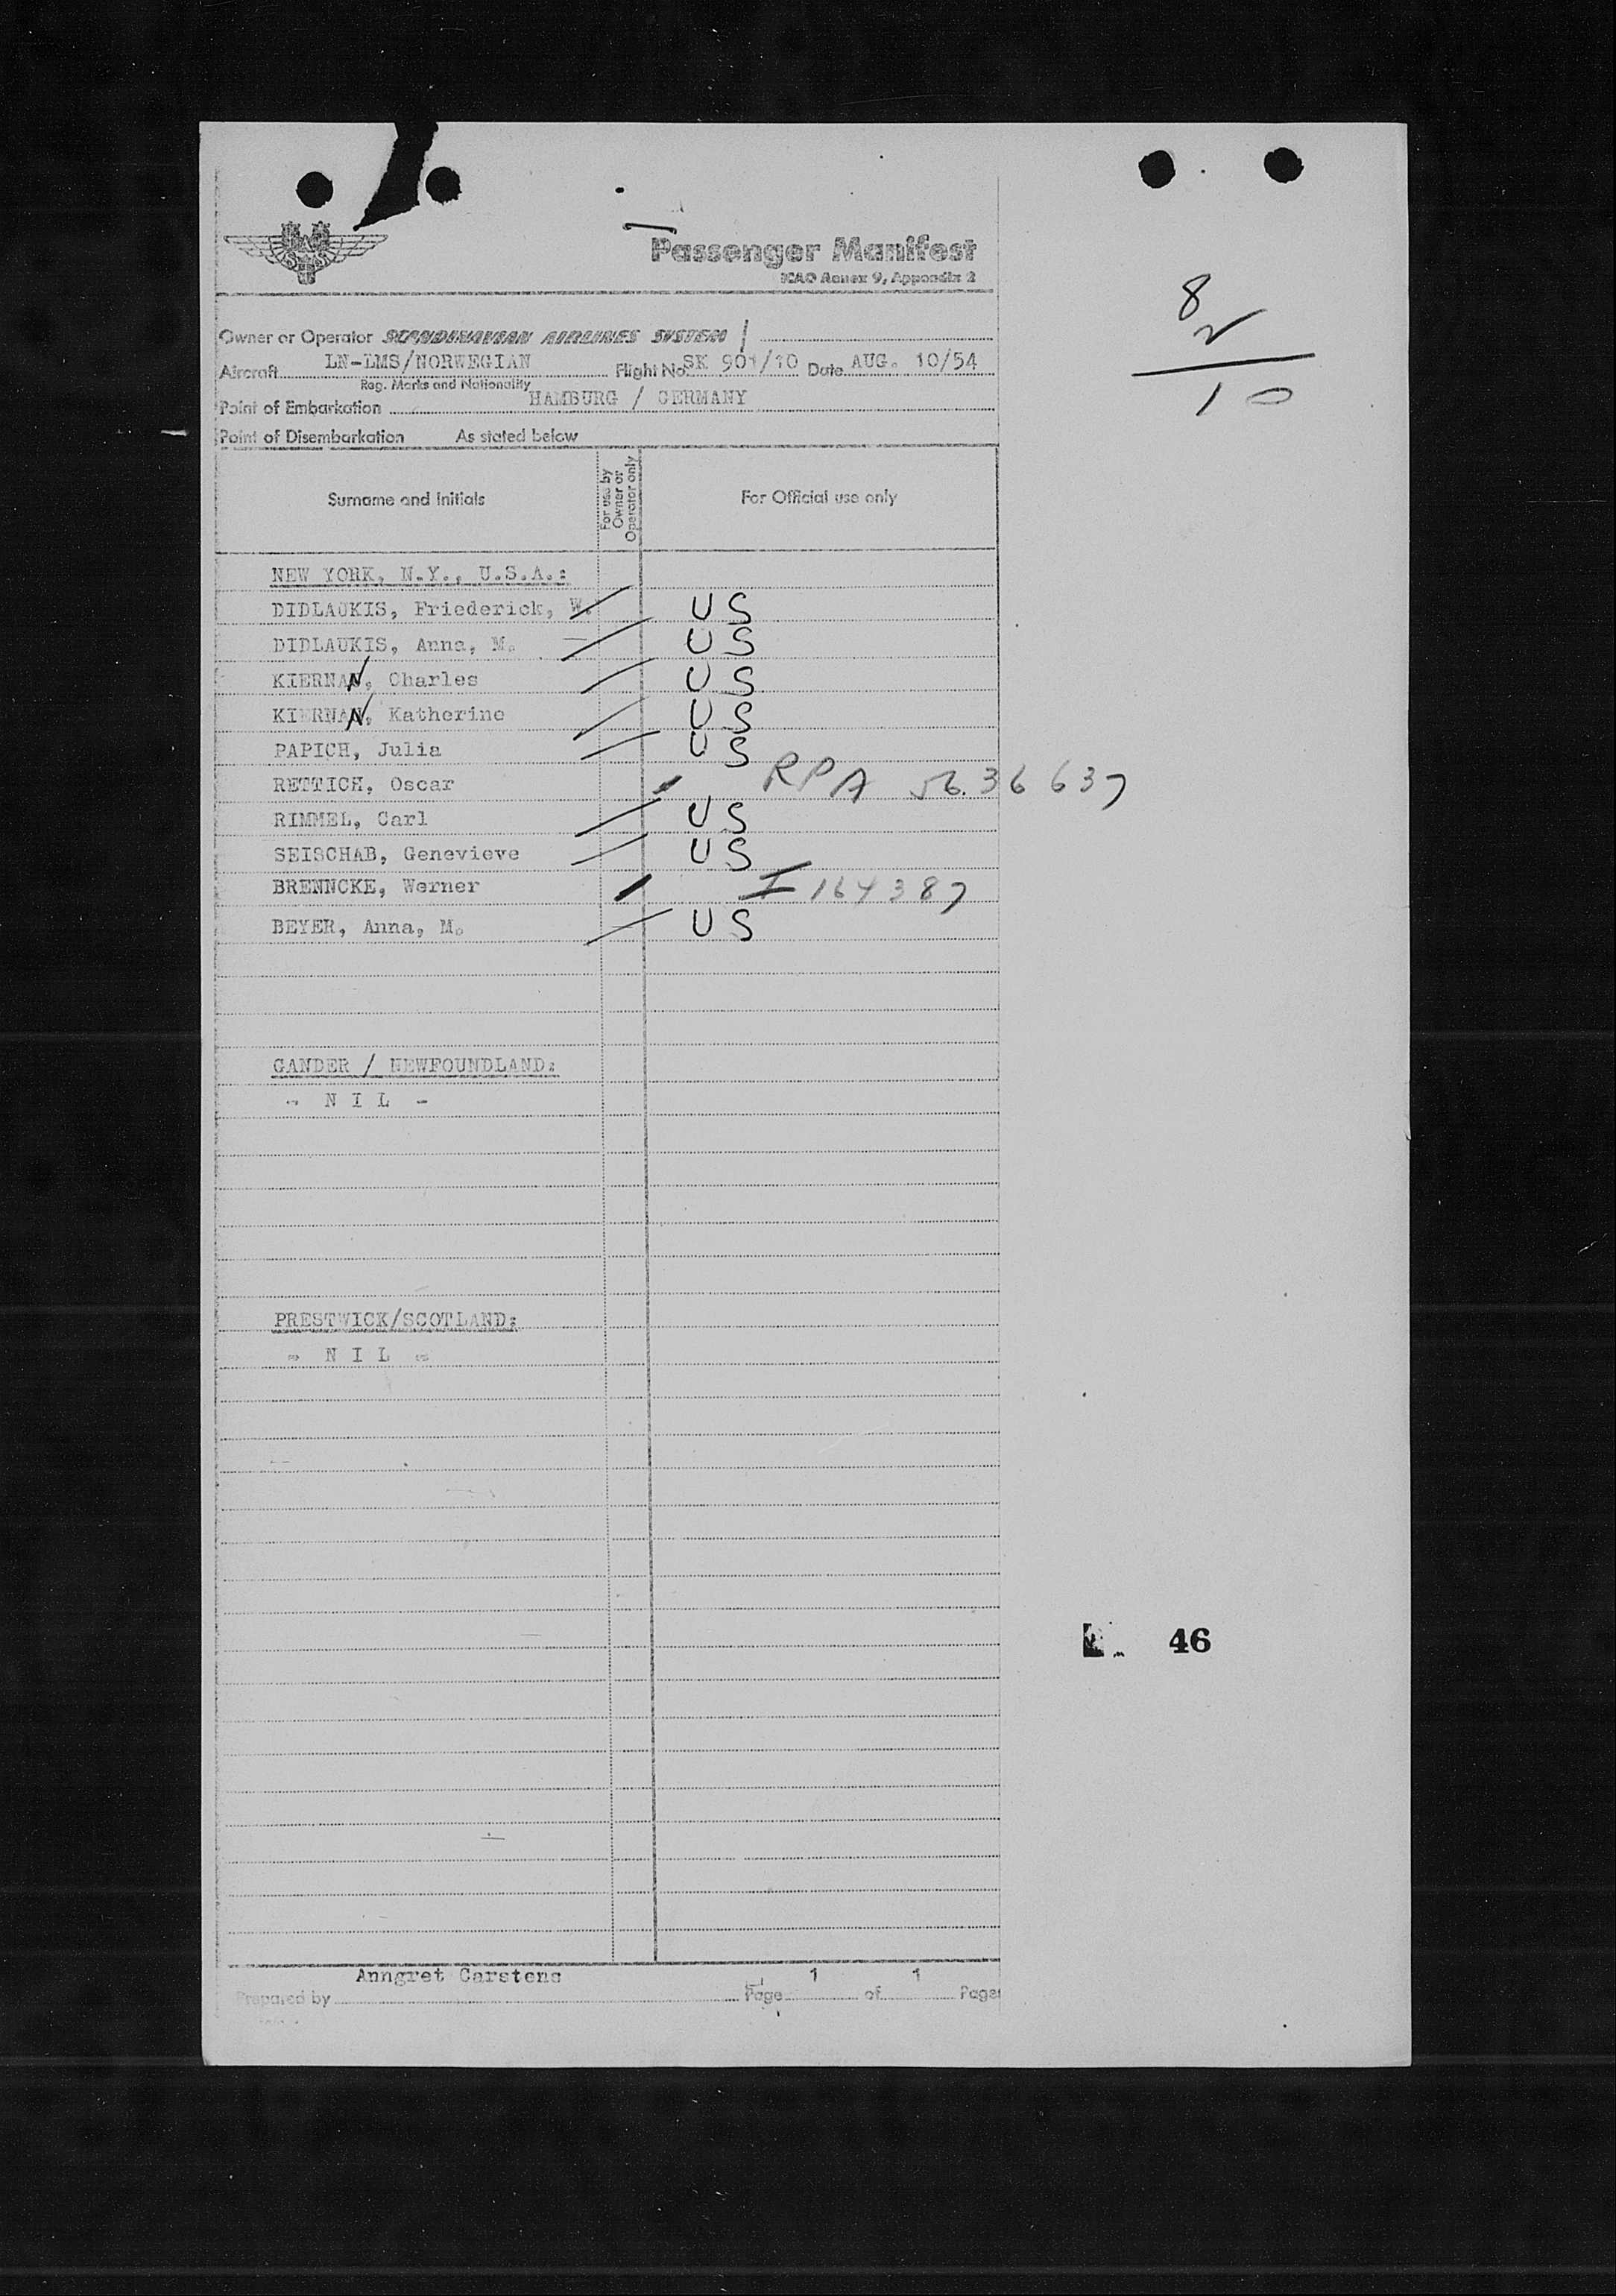 Passenger Manifest
ICAO Annex 9, Appendix 2
8
2
10
Owner or Operator SCANDINAVIAN AIRLINES SYSTEM
Aircraft LN-LMS/NORWEGIAN Flight No. SK 901/10 Date AUG. 10/54
Reg. Marks and Nationality
Point of Embarkation HAMBURG / GERMANY
Point of Disembarkation As stated below
Surname and Initials For use by Owner or Operator only For Official use only
NEW YORK, N.Y., U.S.A.:
DIDLAUKIS, Friederick, W. US
DIDLAUKIS, Anna, M. US
KIERNAN, Charles US
KIERNAN, Katherine US
PAPICH, Julia US
RETTICH, Oscar RPA 56.36 637
RIMMEL, Carl US
SEISCHAB, Genevieve US
BRENNCKE, Werner I 164387
BEYER, Anna, M. US
GANDER / NEWFOUNDLAND:
- N I L -
PRESTWICK/SCOTLAND:
- N I L -
46
Anngret Carstens
Prepared by Page 1 of 1 Pages